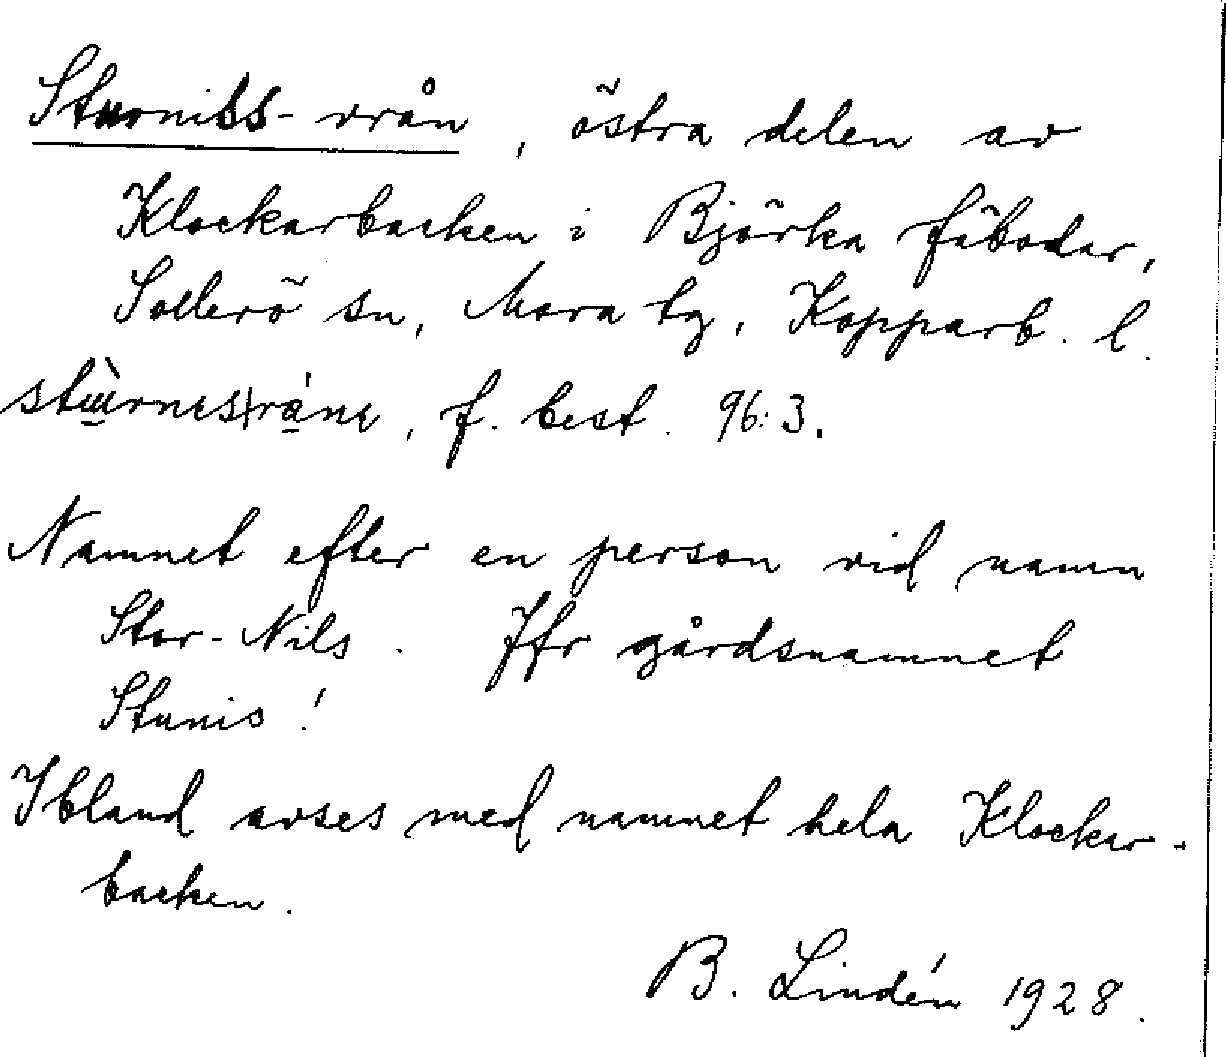 Sturniss-vrån, östra delen av
Klockarbacken i Björka fäbodar,
Sollerö sn, Mora tg, Kopparb. l.
f. best. 96:3.
Namnet efter en person vid namn
Stor-Nils. Jfr gårdsnamnet
Stunis!
Ibland avses med namnet hela Klockar-
backen.
B. Lindén 1928.